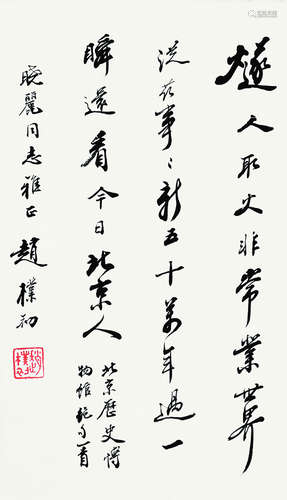 燧人取火非常業世界
从茲事〻新五十萬年過一
瞬還看今日北京人
北京歷史博
物館絕句一首
晚麗同志雅正 趙樸初